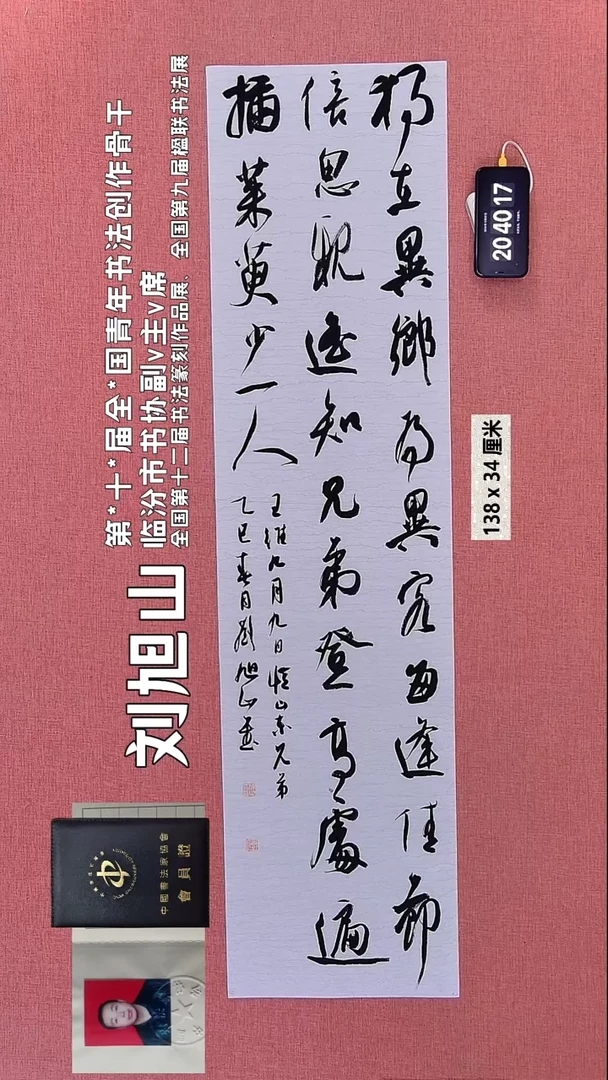 獨立異鄉為異客每逢佳節
倍思親遙知兄弟登高處遍
插茱萸少一人
王維九月九日憶山東兄弟
乙巳春月劉旭山書
第*十*届全*国青年书法创作骨干
临汾市书协副v主v席
全国第十二届书法篆刻作品展、全国第九届楹联书法展
刘旭山
中國書法家協會
會員證
20 40 17
138 x 34 厘米